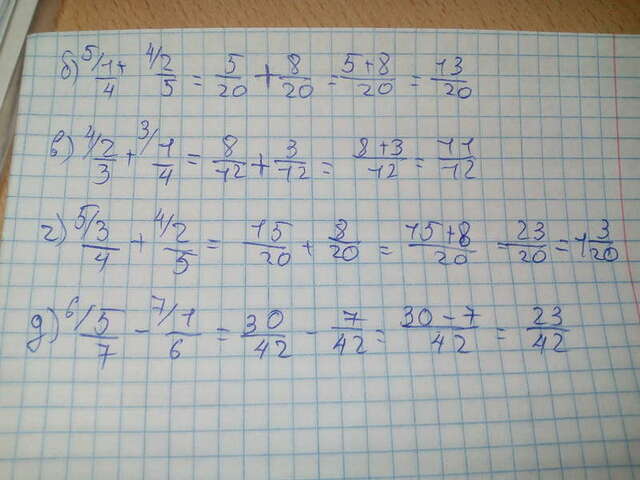 б) ⁵/1/4 + ⁴/2/5 = 5/20 + 8/20 = 5+8/20 = 13/20
в) ⁴/2/3 + ³/1/4 = 8/12 + 3/12 = 8+3/12 = 11/12
г) ⁵/3/4 + ⁴/2/5 = 15/20 + 8/20 = 15+8/20 23/20 = 1 3/20
д) ⁶/5/7 - ⁷/1/6 = 30/42 - 7/42 = 30-7/42 = 23/42